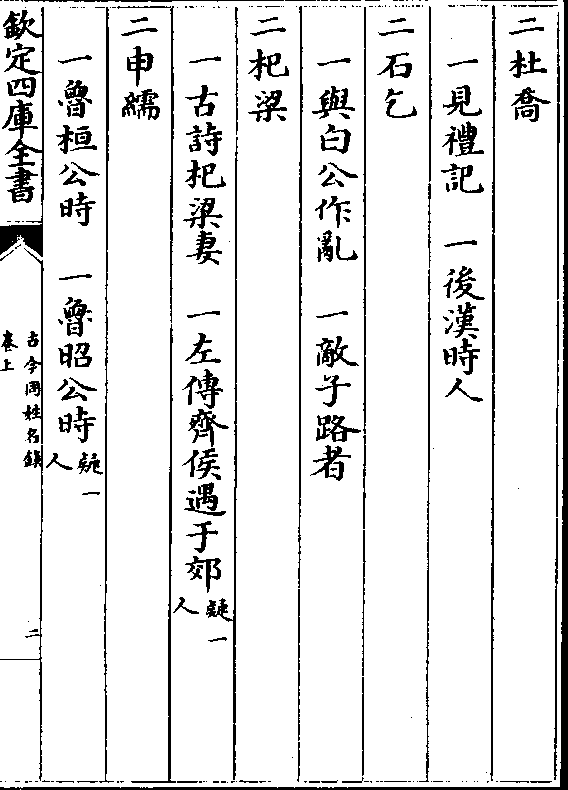 二杜喬
一見禮記　一後漢時人
二石乞
一與白公作亂　一敵子路者
二杞梁
一古詩杞梁妻　一左傳齊侯遇于郊疑一人
二申繻
一魯桓公時　一魯昭公時疑一人
欽定四庫全書
古今同姓名錄
卷上
二